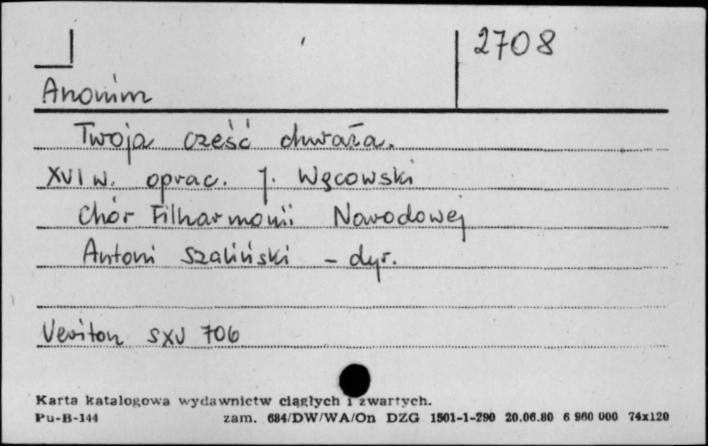 2708
Anonim
Twoja cześć chwała.
XVI w. oprac. J. Węcowski
Chór Filharmonii Narodowej
Antoni Szaliński - dyr.
Veriton SXV 706
Karta katalogowa wydawnictw ciągłych i zwartych.
Pu-B-144 zam. 684/DW/WA/On DZG 1501-1-290 20.06.80 6 960 000 74x120